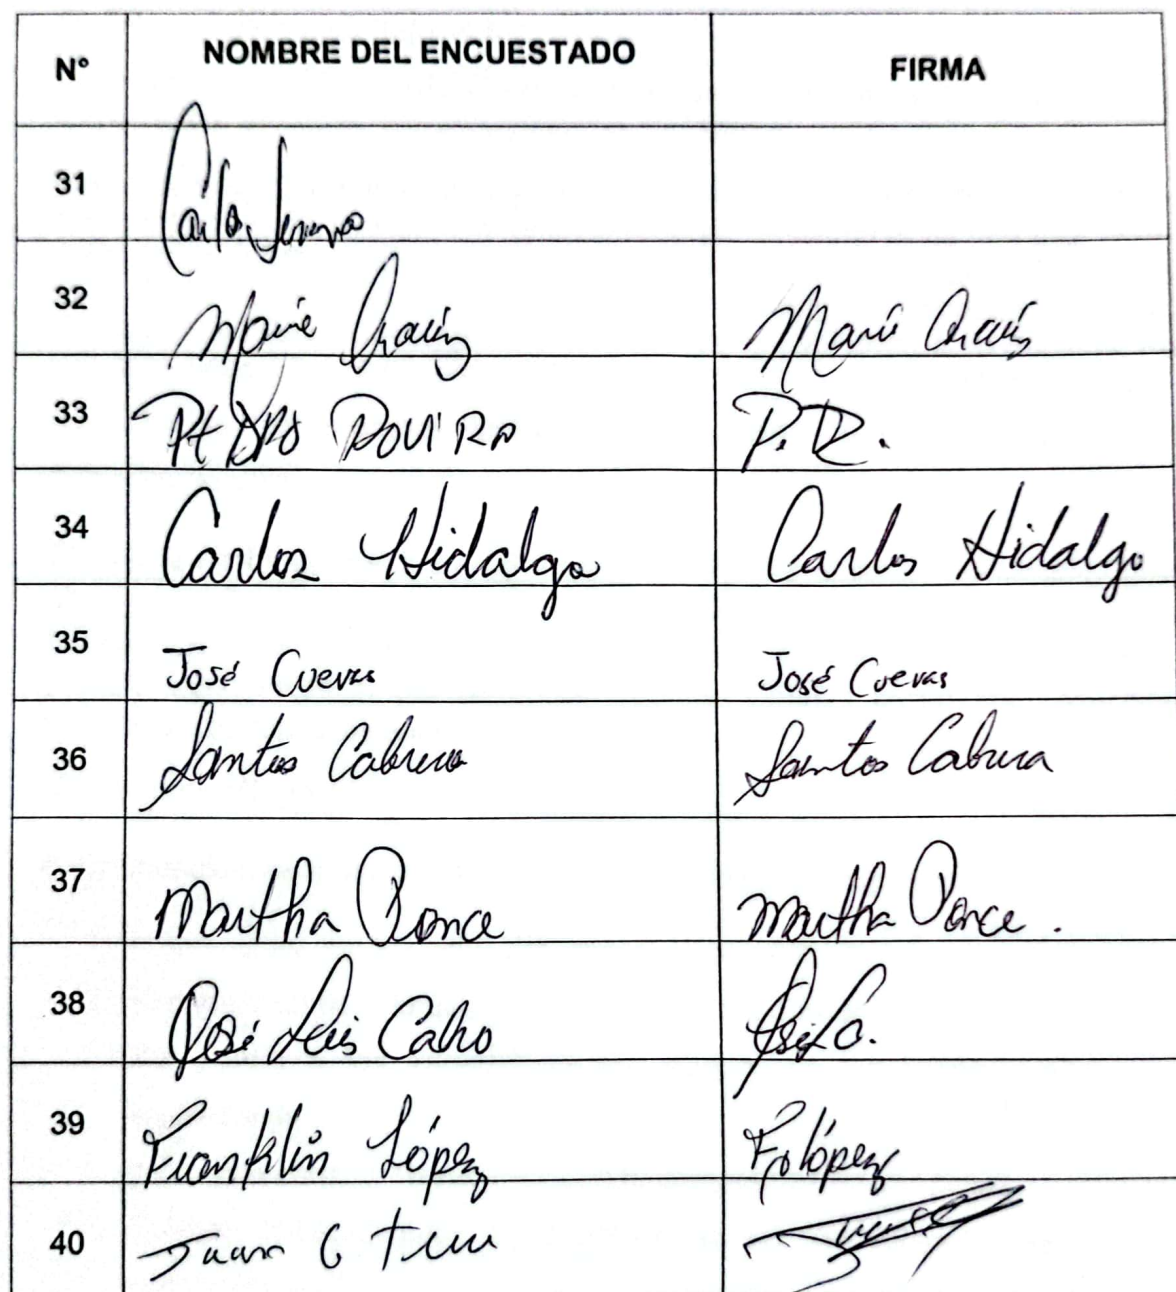 N° NOMBRE DEL ENCUESTADO FIRMA
31 Carlos
32 Marie
33 PEDRO ROVIRA P.R.
34 Carlos Hidalgo Carlos Hidalgo
35 José Cuevas José Cuevas
36 Santos Cabrera Santos Cabrera
37 Martha Ponce Martha Ponce.
38 José Luis Calvo José C.
39 Franklin López López
40 Juan C